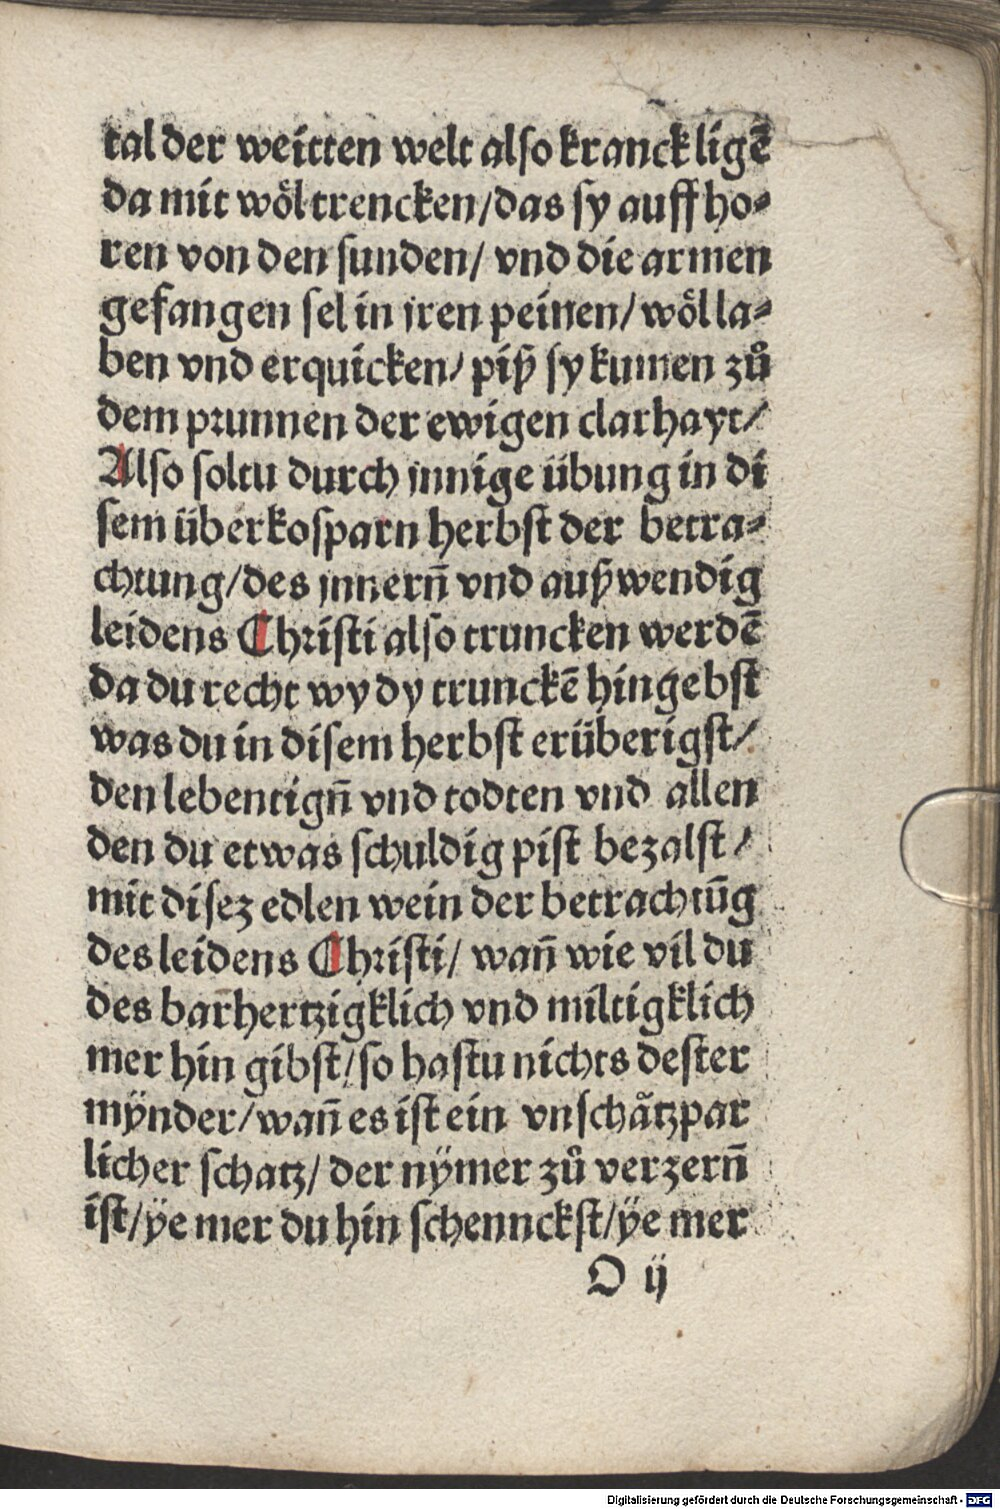 tal der weitten welt also kranck ligē
da mit wöl trencken/das sy auff ho⸗
ren von den sunden/ vnd die armen
gefangen sel in jren peinen/ wöl la⸗
ben vnd erquicken/ piß sy kumen zů
dem prunnen der ewigen clarhayt/
Also soltu durch jnnige übung in di
sem überkosparn herbst der betra⸗
chtung/des jnnern̄ vnd außwendig
leidens Christi also truncken werdē
da du recht wy dy trunckē hingebst
was du in disem herbst erüberigst/
den lebentign̄ vnd todten vnd allen
den du etwas schuldig pist bezalst/
mit disez edlen wein der betrachtūg
des leidens Christi/ wan̄ wie vil du
des bar̄hertzigklich vnd miltigklich
mer hin gibst/so hastu nichts dester
mÿnder/wan̄ es ist ein vnschåtzpar
licher schatz/ der nÿmer zů verzern̄
ist/ÿe mer du hin schennckst/ÿe mer
O ij
Digitalisierung gefördert durch die Deutsche Forschungsgemeinschaft - DFG